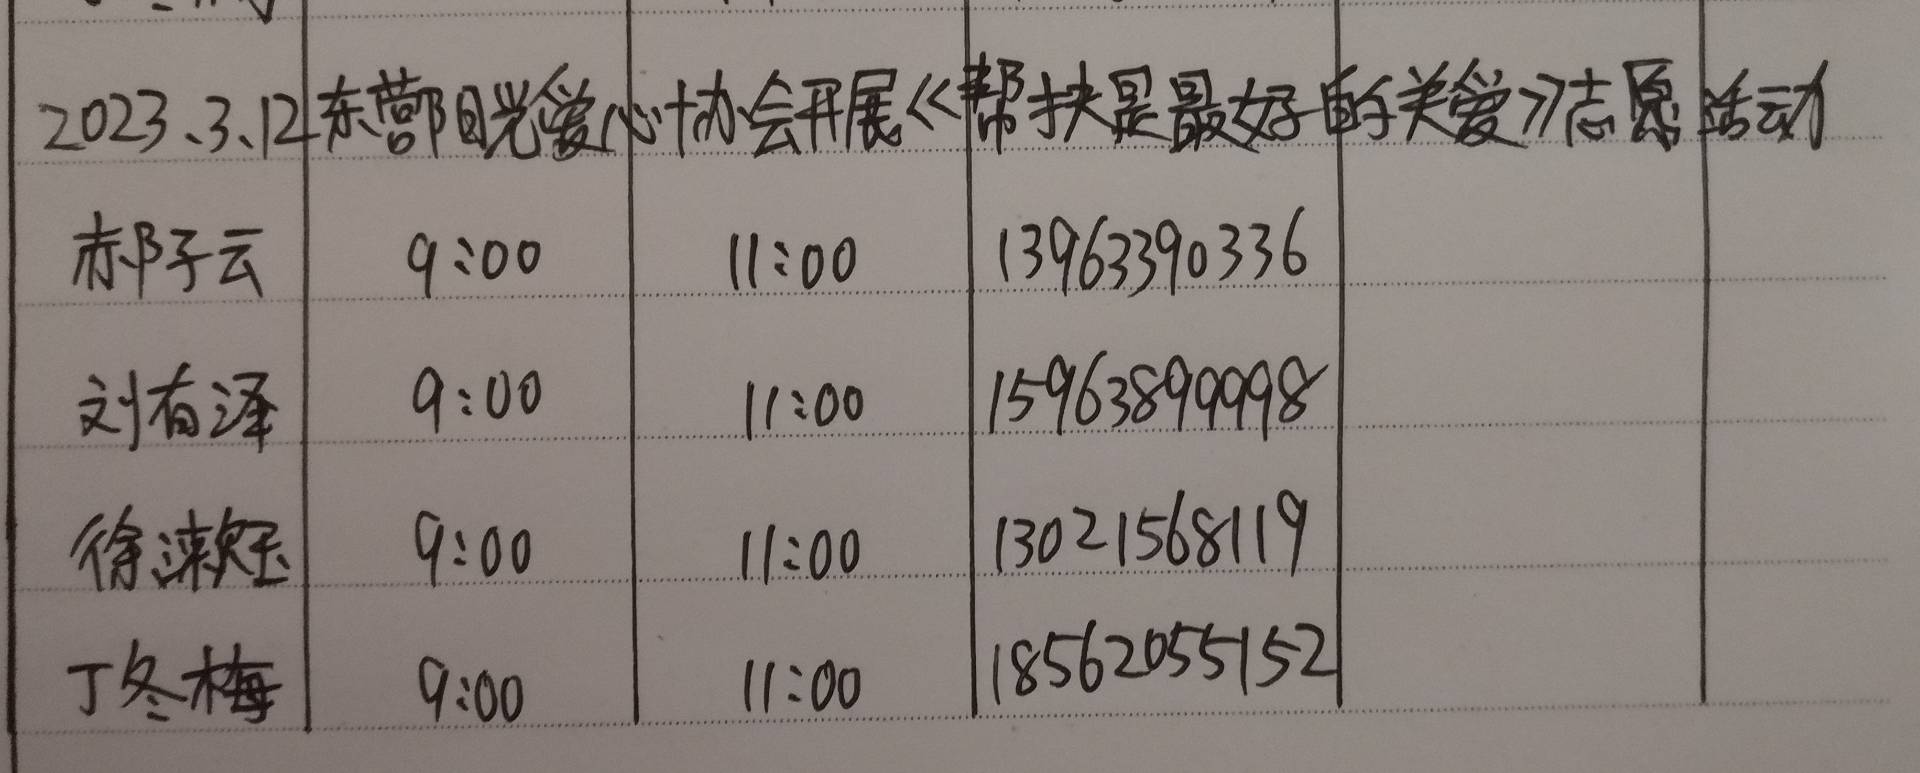 2023.3.12东营阳光爱心协会开展《帮扶是最好的关爱》志愿活动
郝子云 9:00 11:00 13963390336
刘有泽 9:00 11:00 15963899998
徐漱玉 9:00 11:00 13021568119
丁冬梅 9:00 11:00 18562055152